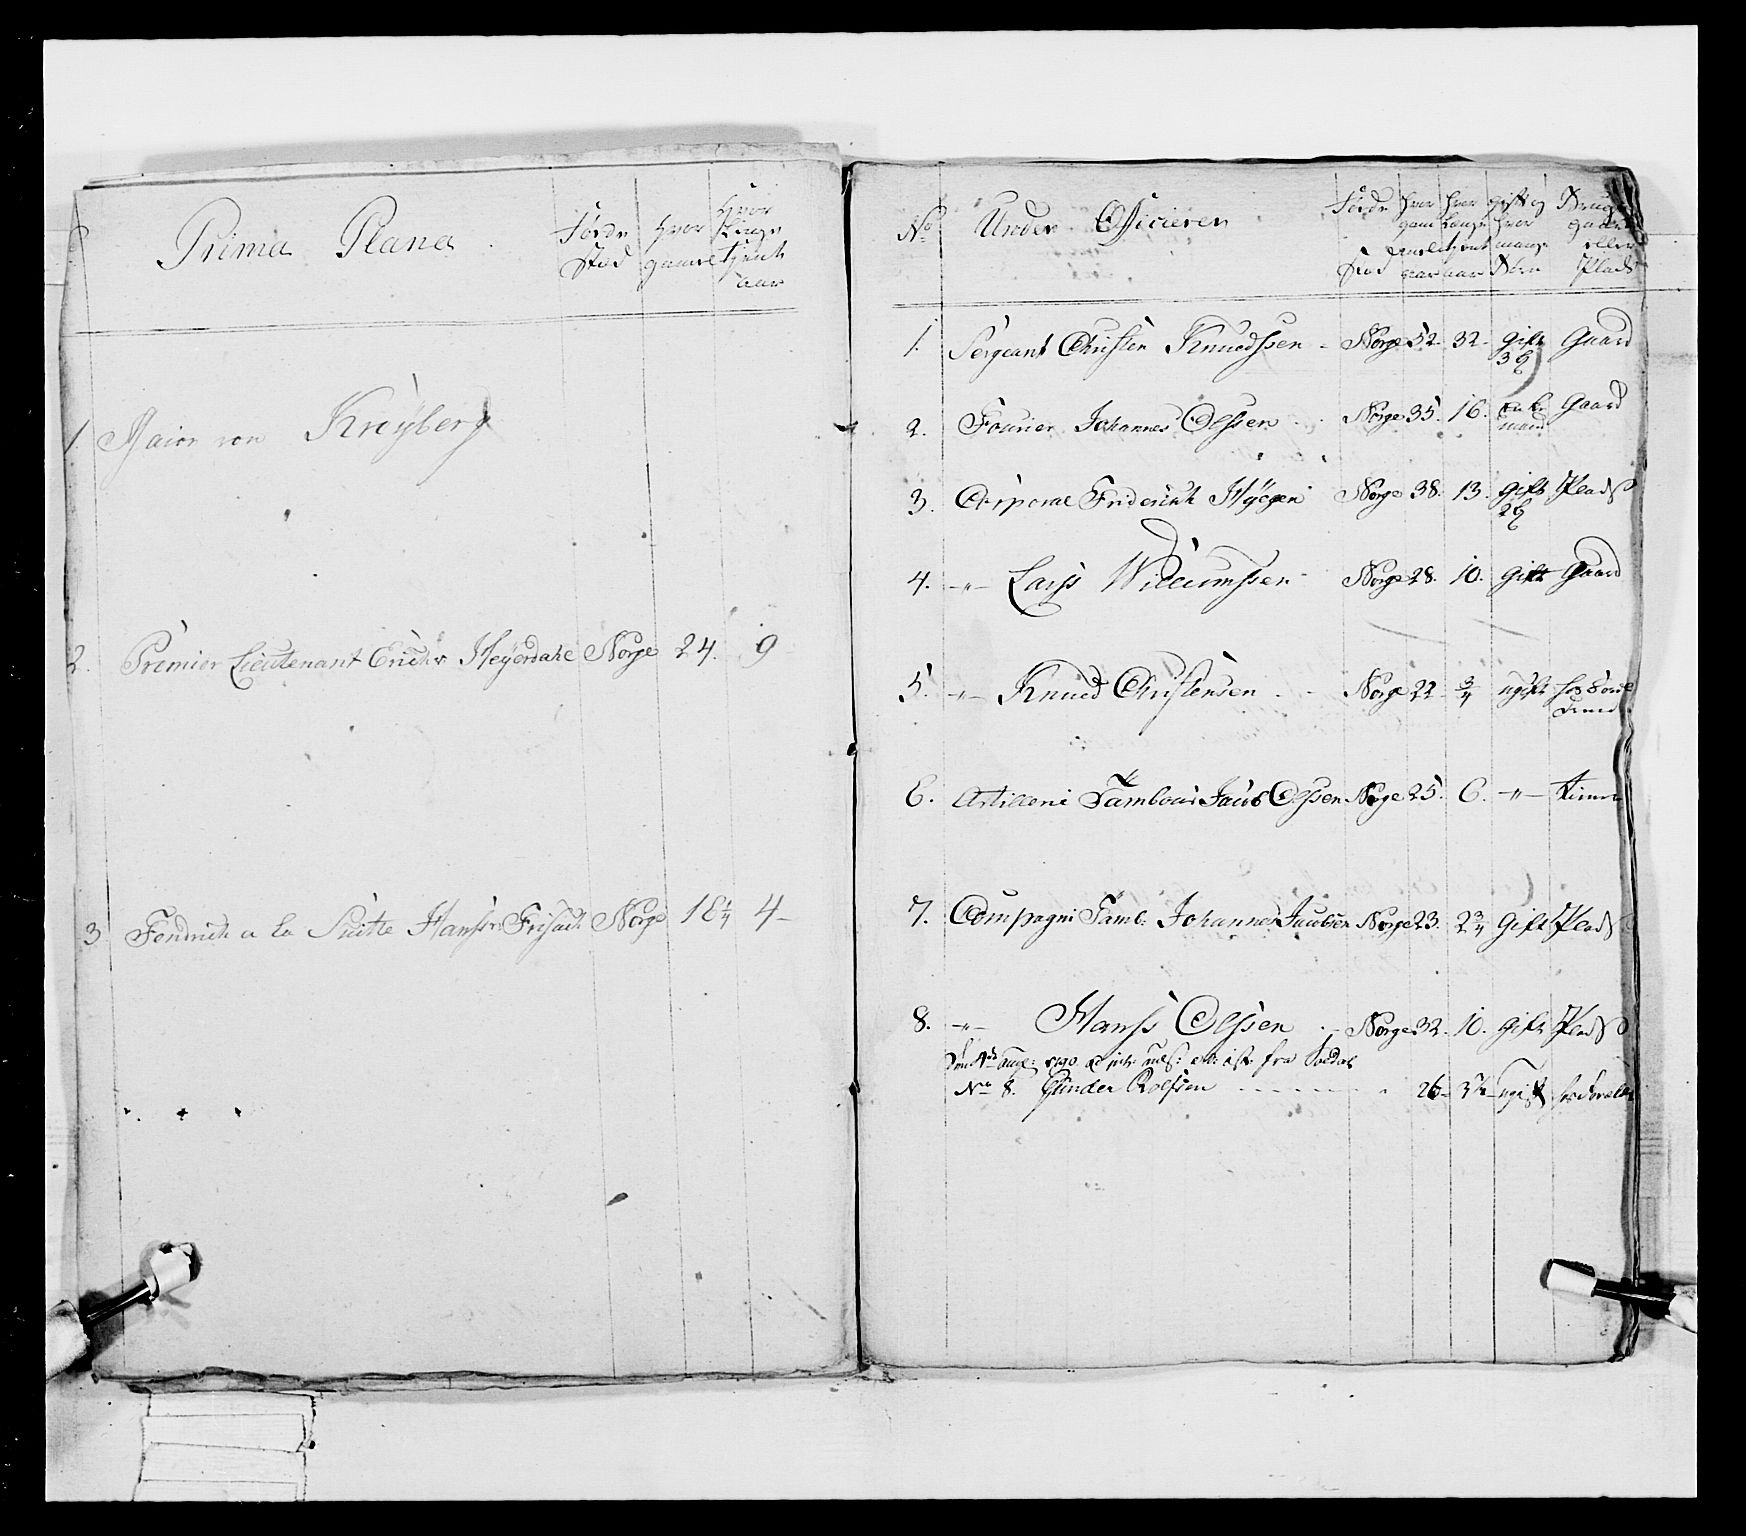 Prima Plana. Føde Stæd hvor gamel hvor længe tient aar
1. Maior von Kreyberg
2. Premier Lieutenant Erich v Heyerdahl Norge 24. 9
3 Fendrich a la Suitte Hans v: Frisach Norge 18 1/4 4-
No Under Officierer Føde Stæd hvor gamel aar hvor længe tient aar gift og hvor mange Børn Brug gaard eller Plads
1. Sergeant Christen Knudssen - Norge 52 32- gift 3 B Gaard
2. Fourier Johannes Olssen - Norge 35. 16. enke mand Gaard
3. Corporal Friderich Hÿegen Norge 38. 13. gift 2 B Plads
4. -"- Larss Willumssen - Norge 28. 10. gift Gaard
5. -"- Knued Christensen - - Norge 22 3/4 ugift hos
6. Artilleri Tambour Jacob Olssen Norge 25. 6. -"-
7. Compagni Tamb: Johannes Jacobsen Norge 23. 2 3/4 Gift Plads
8. -"- Hanss Olssen - Norge 32. 10. gift Plads
Den 4de Aug: 1790 fra
No 8. Gunder Rolfsen - - - - - - 26- ugift